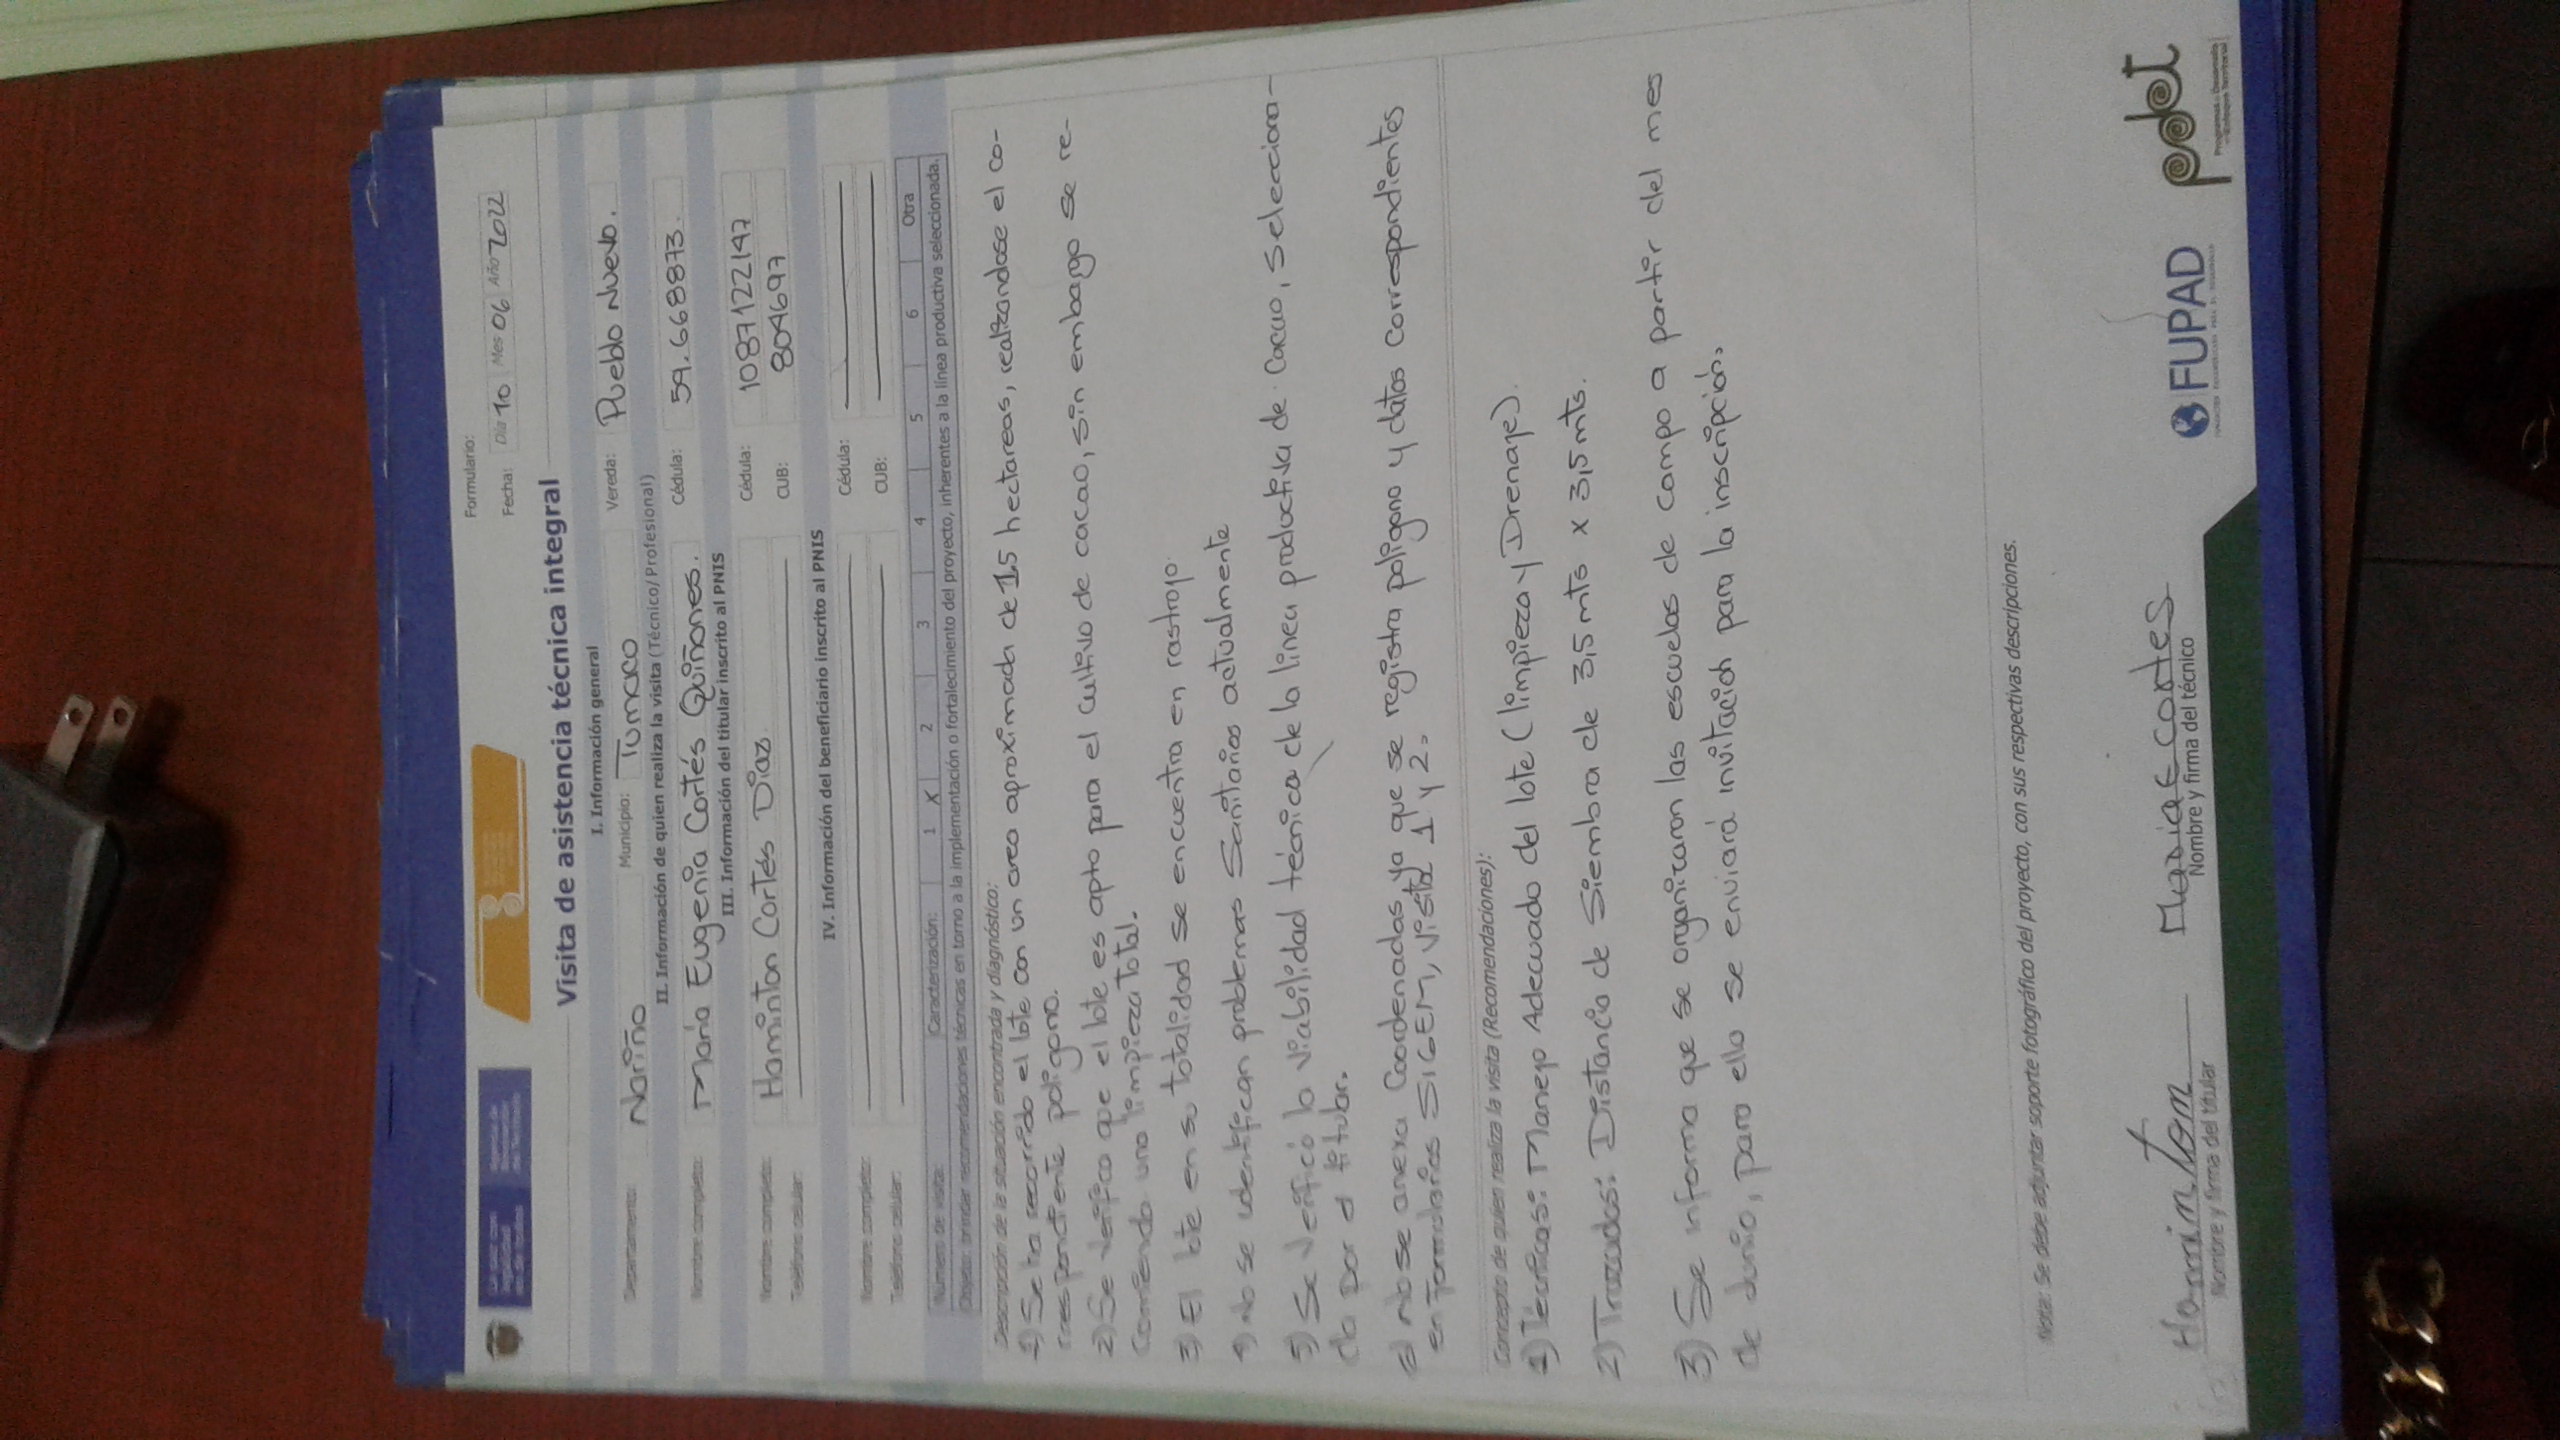 Formulario:
Fecha: Día 10 Mes 06 Año 2022
Visita de asistencia técnica integral
I. Información general
Departamento: Nariño Municipio: Tumaco Vereda: Pueblo Nuevo.
II. Información de quien realiza la visita (Técnico/Profesional)
Nombre completo: María Eugenia Cortés Quiñones. Cédula: 59.668873.
III. Información del titular inscrito al PNIS
Nombre completo: Haminton Cortés Diaz Cédula: 1087122147
Teléfono celular: CUB: 804697
IV. Información del beneficiario inscrito al PNIS
Nombre completo: Cédula:
Teléfono celular: CUB:
Número de visita: Caracterización: 1 X 2 3 4 5 6 Otra
Objeto: brindar recomendaciones técnicas en torno a la implementación o fortalecimiento del proyecto, inherentes a la línea productiva seleccionada.
Descripción de la situación encontrada y diagnóstico:
1) Se ha recorrido el lote con un area aproximada de 1.5 hectareas, realizandose el co-
rrespondiente poligono.
2) Se verifico que el lote es apto para el cultivo de cacao, sin embargo se re-
comienda una limpieza total.
3) El lote en su totalidad se encuentra en rastrojo.
4) No se identifican problemas Sanitarios actualmente
5) Se verificó la viabilidad técnica de la linea productiva de cacao, selecciona-
da por el titular.
6) No se anexa Coordenadas ya que se registra poligono y datos correspondientes
en formularios SIGEM, visita 1 y 2.
Concepto de quien realiza la visita (Recomendaciones):
1) Técnicas: Manejo Adecuado del lote (limpieza y Drenaje).
2) Trazados: Distancia de Siembra de 3,5 mts x 3,5 mts.
3) Se informa que se organizaron las escuelas de campo a partir del mes
de Junio, para ello se enviará invitación para la inscripción.
Nota: Se debe adjuntar soporte fotográfico del proyecto, con sus respectivas descripciones.
Haminton
Nombre y firma del titular
Maria E Cortes
Nombre y firma del técnico
FUPAD
pdet
Programas de Desarrollo
con Enfoque Territorial